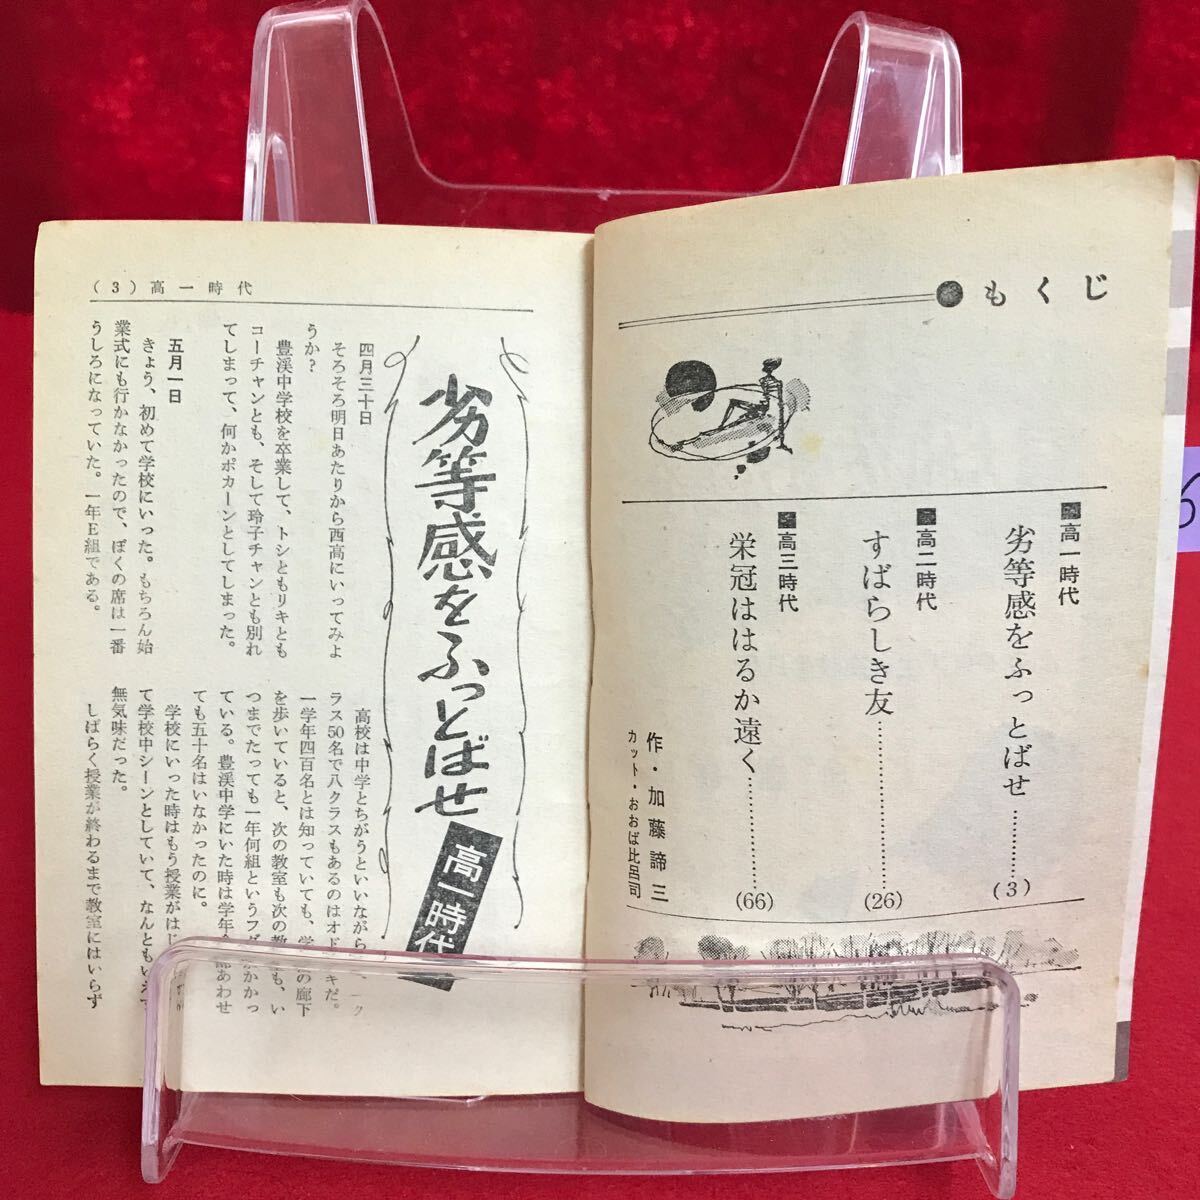 もくじ
■高一時代
劣等感をふっとばせ…………(3)
■高二時代
すばらしき友…………(26)
■高三時代
栄冠ははるか遠く…………(66)
作・加藤諦三
カット・おおば比呂司
(3) 高一時代
劣等感をふっとばせ
高一時代
四月三十日
そろそろ明日あたりから西高にいってみよ
うか？
豊渓中学校を卒業して、トシともリキとも
コーチャンとも、そして玲子チャンとも別れ
てしまって、何かポカーンとしてしまった。
五月一日
きょう、初めて学校にいった。もちろん始
業式にも行かなかったので、ぼくの席は一番
うしろになっていた。一年Ｅ組である。
高校は中学とちがうといいながら
ラス50名で八クラスもあるのはオド キだ。
一学年四百名とは知っていても、学 の廊下
を歩いていると、次の教室も次の教 も、い
つまでたっても一年何組というフダ かかっ
ている。豊渓中学にいた時は学年 あわせ
ても五十名はいなかったのに。
学校にいった時はもう授業がはじ
て学校中シーンとしていて、なんとも
無気味だった。
しばらく授業が終わるまで教室にはいらず